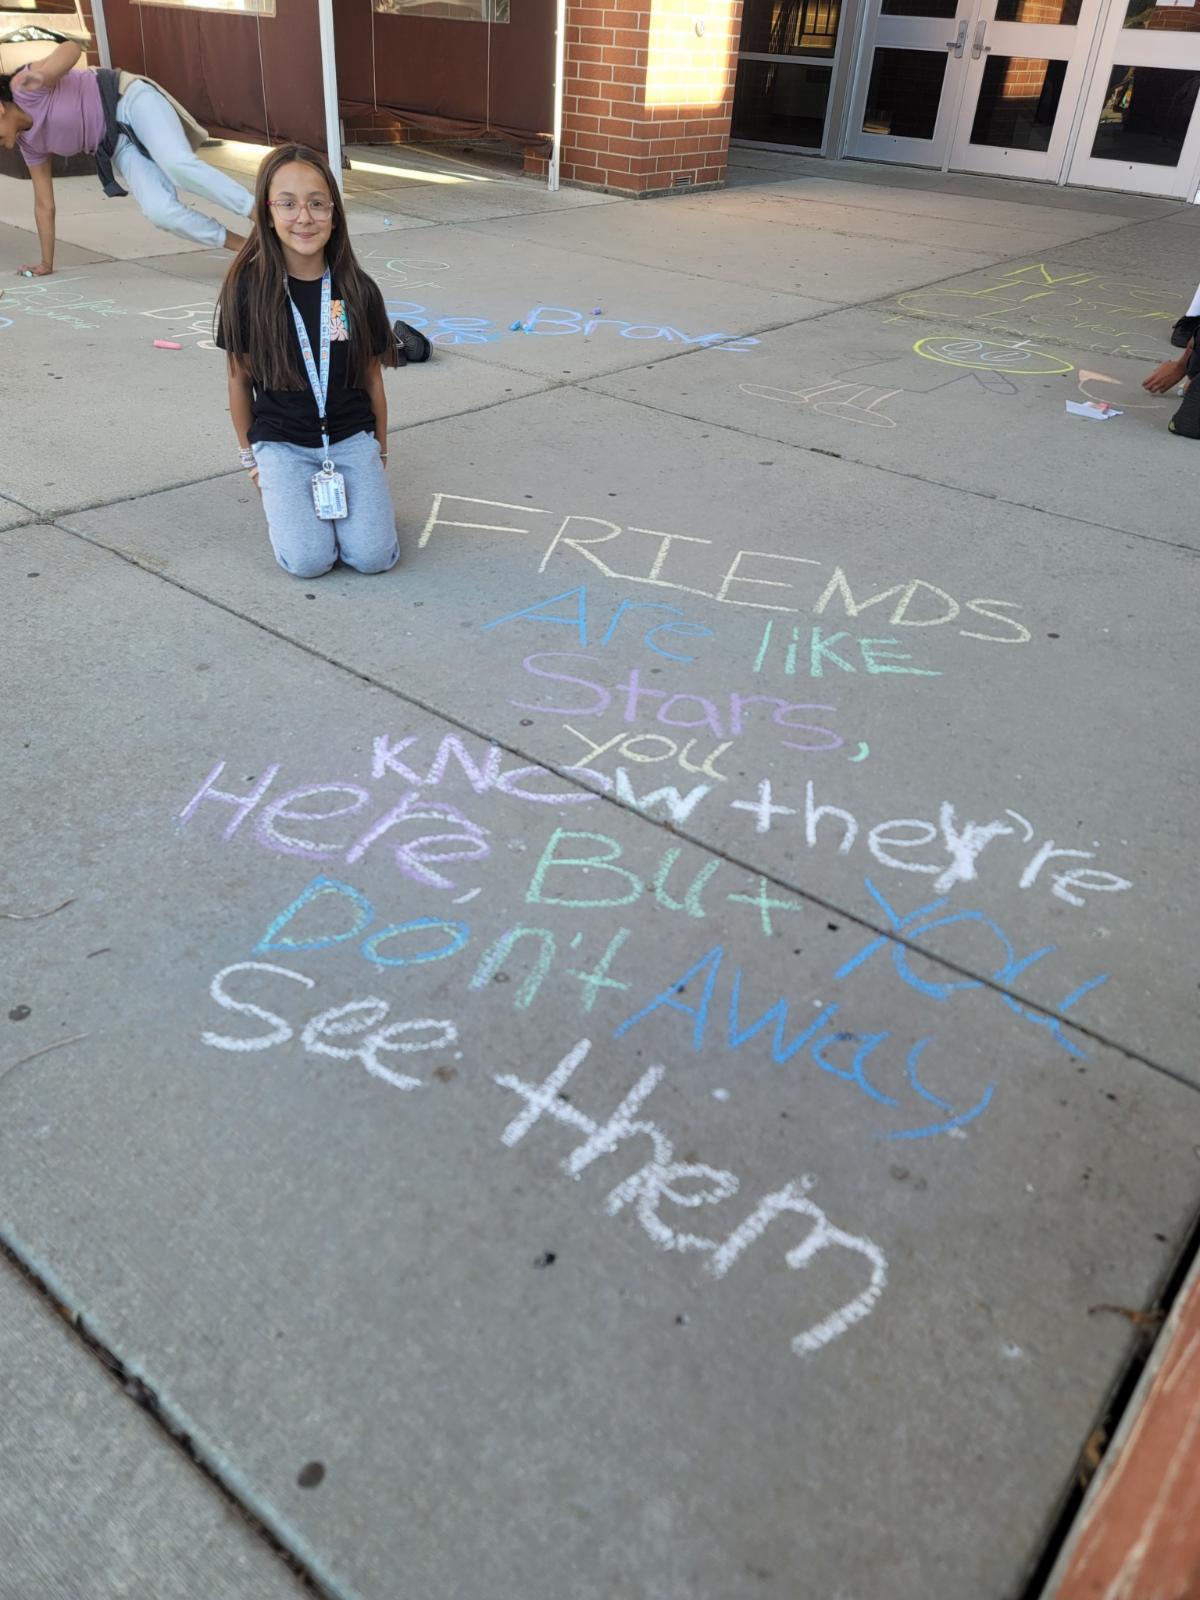 Be Brave
NICE
FRIENDS
Are liKE
Stars,
you
KNOW they're
Here, But You
DOn't AWay
See them